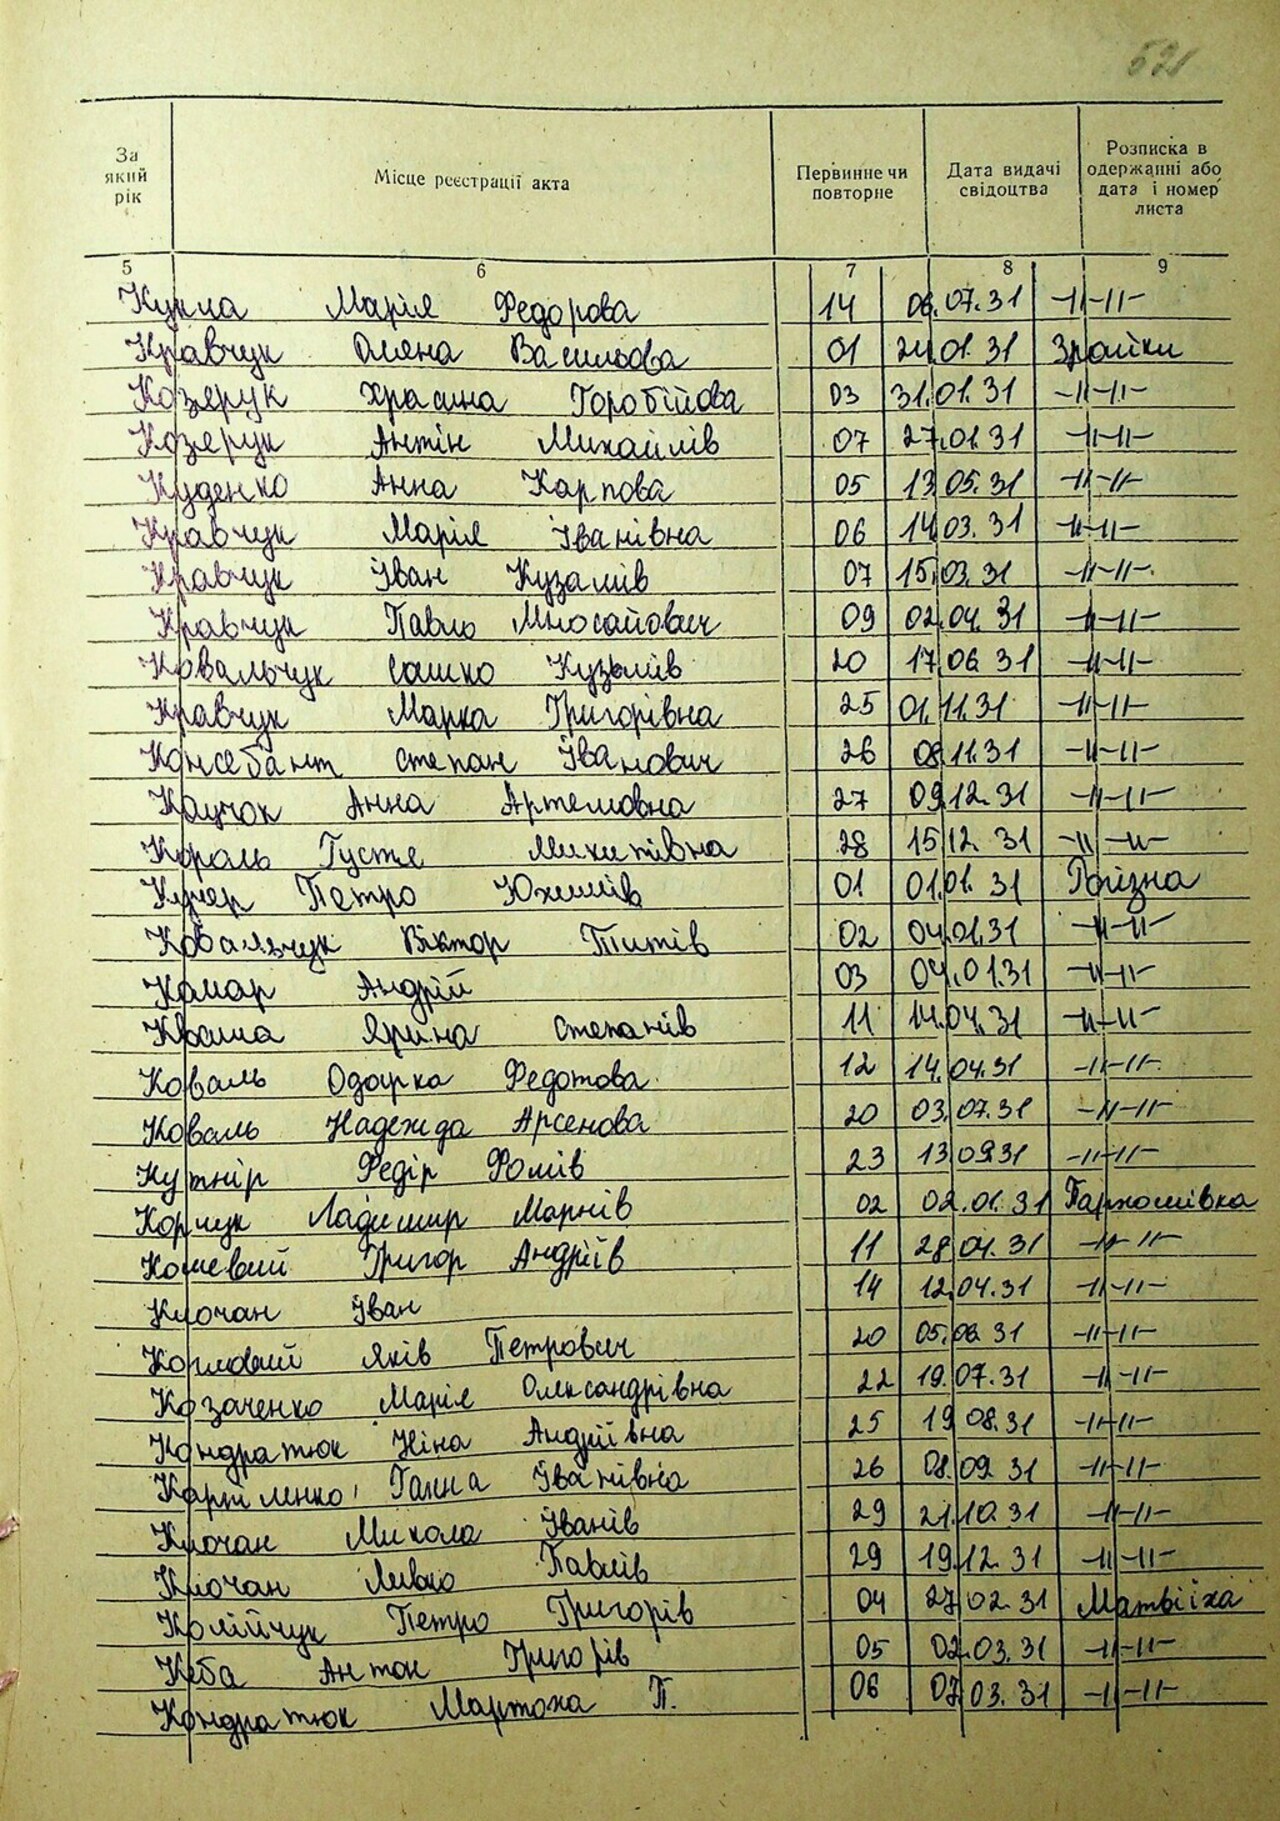 521
За який рік
Місце реєстрації акта
Первинне чи повторне
Дата видачі свідоцтва
Розписка в одержанні або дата і номер листа
5 6 7 8 9
Кукла Марія Федорова 14 06.07.31 -//-//-
Кравчук Олена Васильова 01 24.01.31 Зрайки
Козерук Храсина Горобійова 03 31.01.31 -//-//-
Козерук Антін Михайлів 07 27.01.31 -//-//-
Куденко Анна Карпова 05 13.05.31 -//-//-
Кравчук Марія Іванівна 06 14.03.31 -//-//-
Кравчук Іван Кузьмів 07 15.03.31 -//-//-
Кравчук Павло 09 02.04.31 -//-//-
Ковальчук Сашко Кузьмів 20 17.06.31 -//-//-
Кравчук Марка Григорівна 25 01.11.31 -//-//-
Консебант Степан Іванович 26 08.11.31 -//-//-
Анна Артемовна 27 09.12.31 -//-//-
Король Густя Микитівна 28 15.12.31 -//-//-
Кучер Петро Юхимів 01 01.01.31 Рогізна
Ковальчук Віктор Титів 02 04.01.31 -//-//-
Комар Андрій 03 04.01.31 -//-//-
Кваша Ярина Степанів 11 14.04.31 -//-//-
Коваль Одарка Федотова 12 14.04.31 -//-//-
Коваль Надежда Арсенова 20 03.07.31 -//-//-
Кутнір Федір Фомів 23 13.09.31 -//-//-
Корчук Ладимир Марнів 02 02.01.31 Пархомівка
Кошевий Григор Андріїв 11 28.04.31 -//-//-
Клочан Іван 14 12.04.31 -//-//-
Яків Петрович 20 05.06.31 -//-//-
Козаченко Марія Олександрівна 22 19.07.31 -//-//-
Кондратюк Ніна Андріївна 25 19.08.31 -//-//-
Карпіленко Ганна Іванівна 26 08.09.31 -//-//-
Клочан Микола Іванів 29 21.10.31 -//-//-
Клочан Левко Павлів 29 19.12.31 -//-//-
Колійчук Петро Григорів 04 27.02.31 Матвіїха
Кеба Антон Григорів 05 02.03.31 -//-//-
Кондратюк Мартоха П. 06 07.03.31 -//-//-